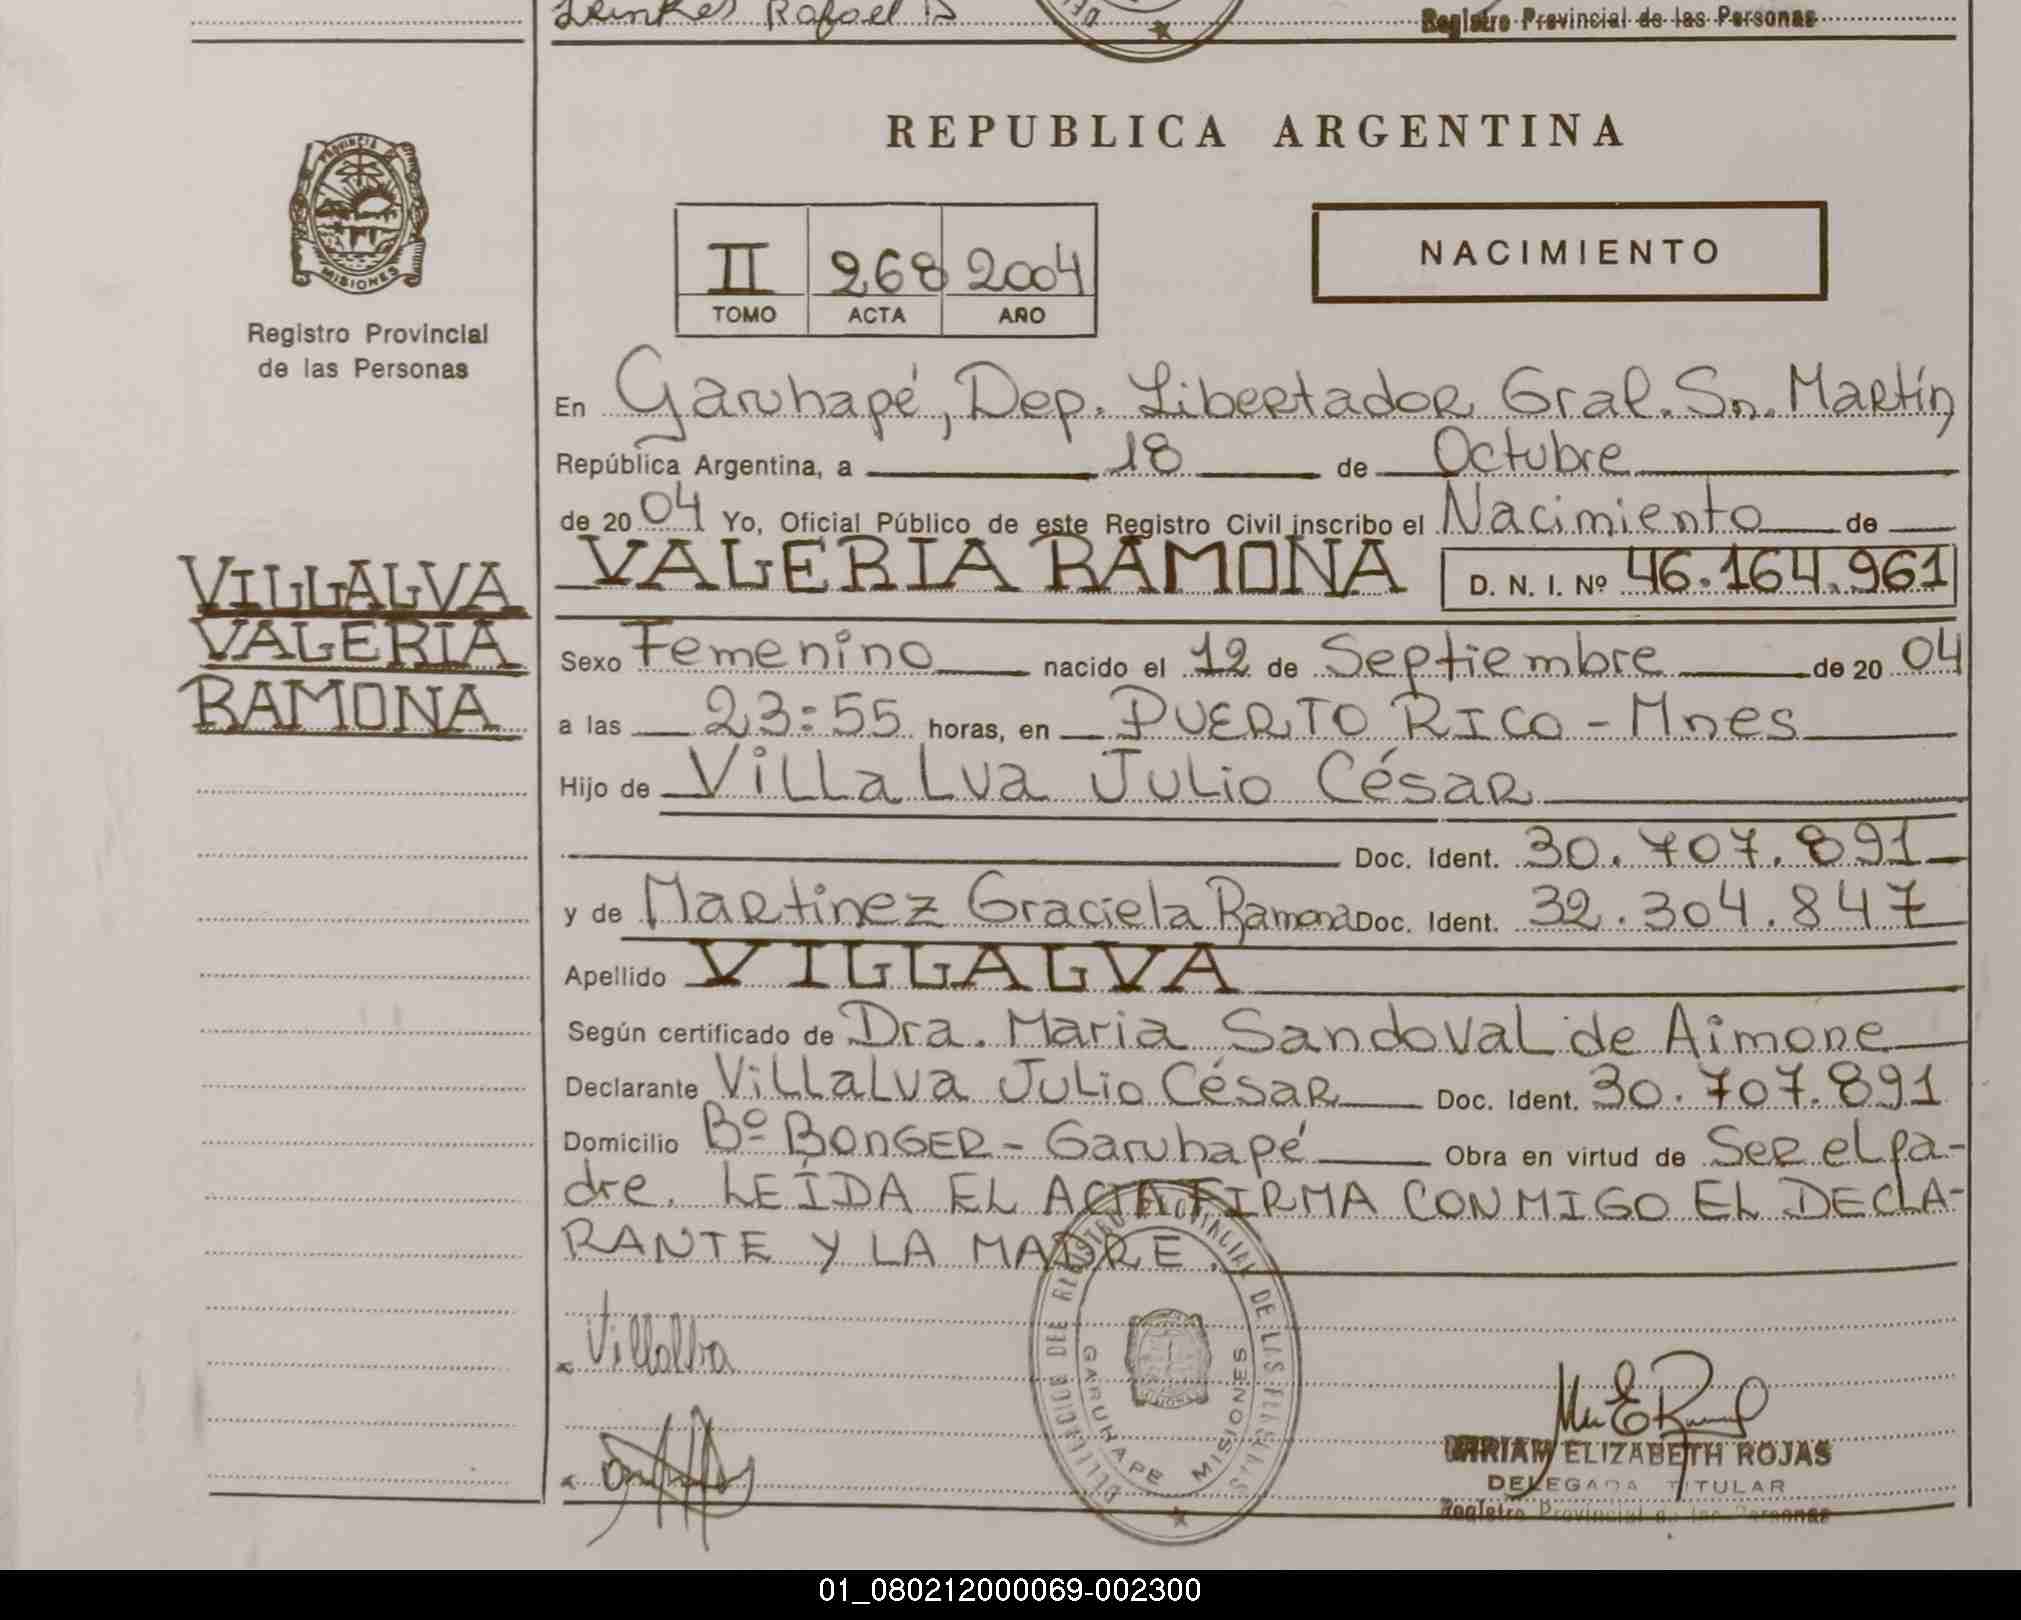 Rafael D
Registro Provincial de las Personas
REPUBLICA ARGENTINA
PROVINCIA DE
MISIONES
Registro Provincial
de las Personas
II 268 2004
TOMO ACTA AÑO
NACIMIENTO
En Garuhapé, Dep. Libertador Gral. Sn. Martín
República Argentina, a 18 de Octubre
de 2004 Yo, Oficial Público de este Registro Civil inscribo el Nacimiento de
VALERIA RAMONA D. N. I. Nº 46.164.961
VILLALVA
VALERIA
RAMONA
Sexo Femenino nacido el 12 de Septiembre de 2004
a las 23:55 horas, en PUERTO RICO - Mnes
Hijo de Villalva Julio César
Doc. Ident. 30.707.891
y de Martinez Graciela Ramona Doc. Ident. 32.304.847
Apellido VILLALVA
Según certificado de Dra. Maria Sandoval de Aimone
Declarante Villalva Julio César Doc. Ident. 30.707.891
Domicilio Bº BONGER - Garuhapé Obra en virtud de Ser el pa-
dre. LEÍDA EL ACTA FIRMA CONMIGO EL DECLA-
RANTE Y LA MADRE.
DEL REGISTRO PROVINCIAL DE LAS PERSONAS
GARUHAPE MISIONES
Villalba
MIRIAM ELIZABETH ROJAS
DELEGADA TITULAR
Registro Provincial de las Personas
01_080212000069-002300